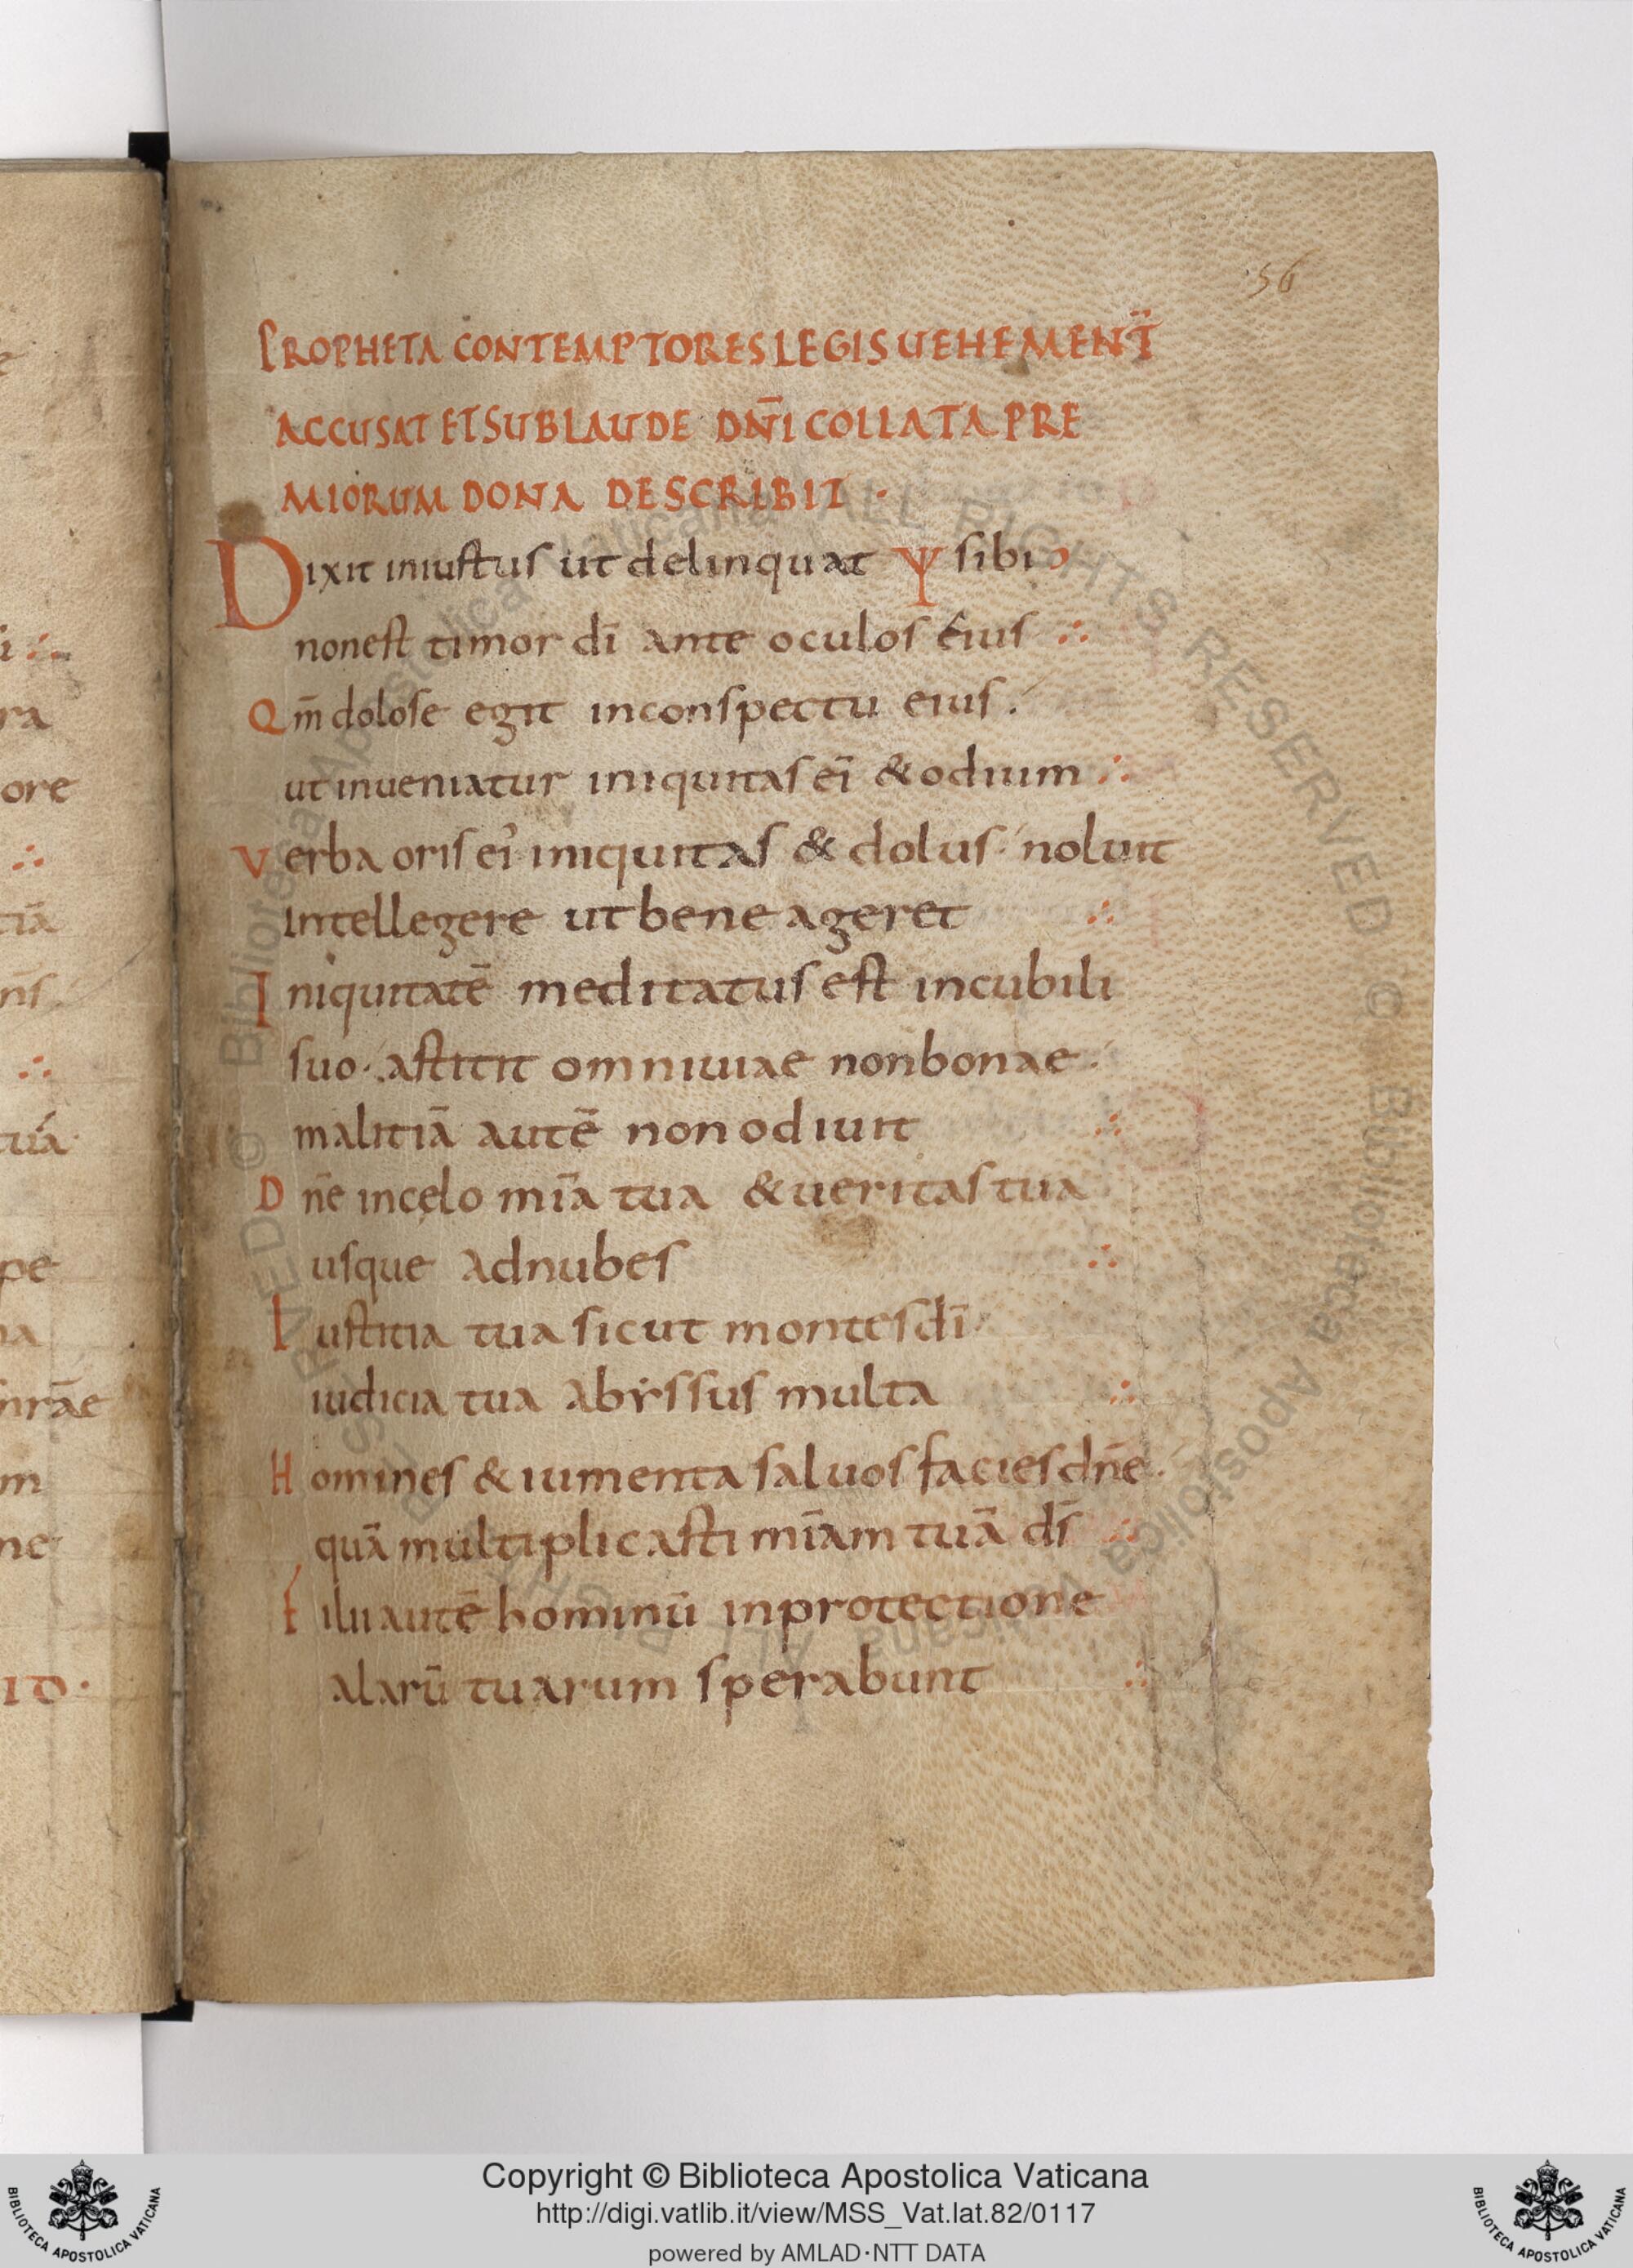 56
PROPHETA CONTEMPTORES LEGIS UEHEMENT̄
ACCUSAT ET SUB LAUDE DN̄I COLLATA PRE
MIORUM DONA DESCRIBIT ·
Dixit iniustus ut delinquat ψ sibi
non est timor dī ante oculos eius ∴
Qm̄ dolose egit in conspectu eius .
ut inueniatur iniquitas eī & odium ∴
Verba oris ei' iniquitas & dolus · noluit
intellegere ut bene ageret ∴
Iniquitatē meditatus est in cubili
suo · astitit omni uiae non bonae ·
malitiā autē non odiuit ∴
Dnē in cęlo mīa tua & ueritas tua
usque ad nubes ∴
Iustitia tua sicut montes dī ·
iudicia tua abẏssus multa ∴
Homines & iumenta saluos facies dnē ·
quā multiplicasti mīam tuā dī ∴
Filii autē hominū in protectione
alarū tuarum sperabunt ∴
ra
ore
∴
tiā
nīs
∴
tuā
pe
m
ne
ID ·
Copyright © Biblioteca Apostolica Vaticana
http://digi.vatlib.it/view/MSS_Vat.lat.82/0117
powered by AMLAD·NTT DATA
BIBLIOTECA APOSTOLICA VATICANA
BIBLIOTECA APOSTOLICA VATICANA